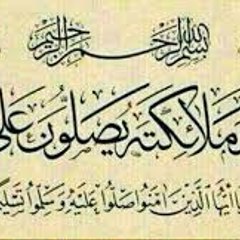 بِسْمِ اللهِ الرَّحْمٰنِ الرَّحِيمِ
وَمَلَائِكَتَهُ يُصَلُّونَ عَلَى
يَا اَيُّهَا الَّذِينَ اٰمَنُوا صَلُّوا عَلَيْهِ وَسَلِّمُوا تَسْلِيـ